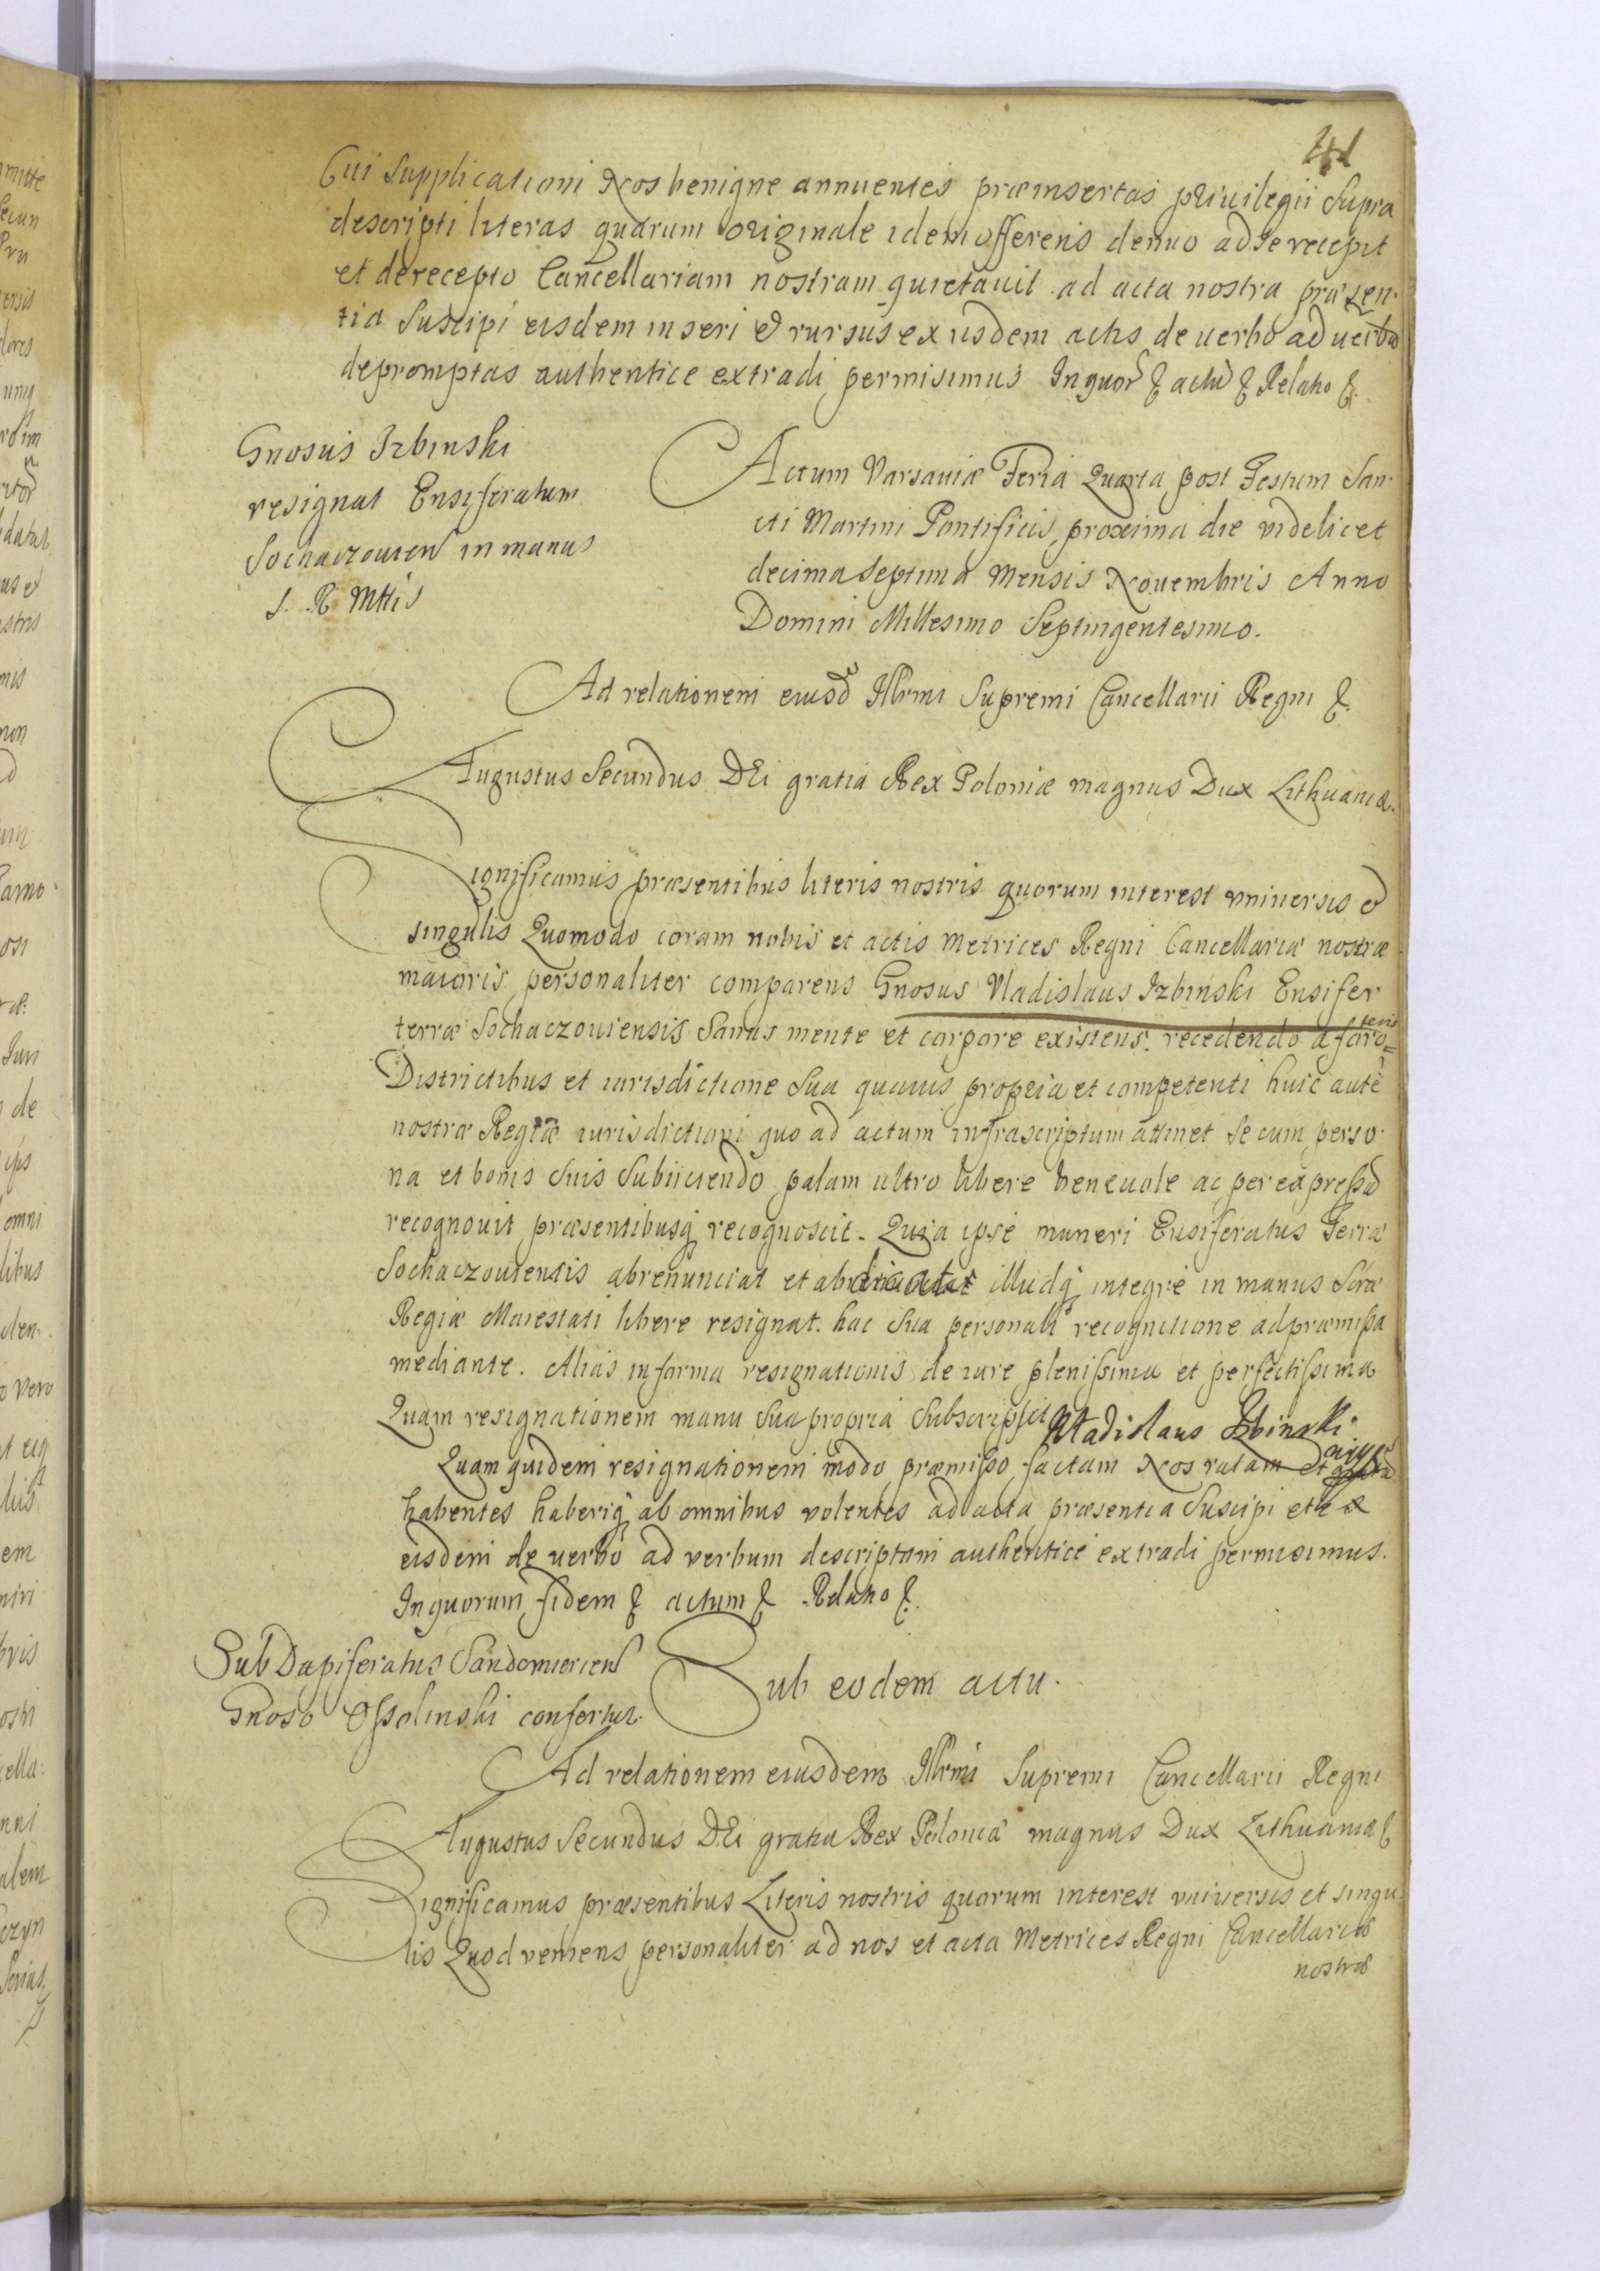 41
Cui Supplicationi Nos benigne annuentes præinsertas priuilegii Supra
descripti literas quarum originale idem offerens denuo ad Se recepit
et de recepto Cancellariam nostram quietauit ad acta nostra præsen-
tia Suscipi eisdem inseri et rursus ex iisdem actis de uerbo ad uerbū
depromptas authentice extradi permisimus In quor̄ & actū & Relatio &
Gnosus Izbinski
resignat Ensiferatum
Sochaczouien in manus
S. R. Mttis
Actum Varsauiæ Feria Quarta post Festum San-
cti Martini Pontificis proxima die videlicet
decima Septima Mensis Nouembris Anno
Domini Millesimo Septingentesimo.
Ad relationem eiusd Illrmi Supremi Cancellarii Regni &
Augustus Secundus DEi gratia Rex Poloniæ magnus Dux Lithuaniæ.
Significamus præsentibus literis nostris quorum interest vniuersis et
singulis Quomodo coram nobis et actis Metrices Regni Cancellariæ nostræ
maioris personaliter comparens Gnosus Vladislaus Izbinski Ensifer
terræ Sochaczouiensis Sanus mente et corpore existens. recedendo a foro= terris
Districtibus et iurisdictione Sua quauis propria et competenti huic autē
nostræ Regiæ iurisdictioni quo ad actum infrascriptum attinet Se cum perso-
na et bonis Suis Subiiciendo palam ultro libere beneuole ac per expressū
recognouit præsentibusq recognoscit. Quia ipse muneri Ensiferatus Terræ
Sochaczouiensis abrenunciat et abdicat illudq integre in manus Scræ
Regiæ Maiestati libere resignat. hac Sua personali recognitione ad præmissa
mediante. Alias in forma resignationis de iure plenissima et perfectissima
Quam resignationem manu Sua propria Subscripsit Vladislaus Izbinski
Quam quidem resignationem modo præmisso factam Nos ratam et
habentes haberiq ab omnibus volentes ad acta præsentia Suscipi et ex
eisdem de uerbo ad verbum descriptam authentice extradi permisimus.
In quorum fidem & actum & Relatio &
SubDapiferatus Sandomirien
Gnoso Ossolinski confertur.
Sub eodem actu.
Ad relationem eiusdem Illrmi Supremi Cancellarii Regni
Augustus Secundus DEi gratia Rex Poloniæ magnus Dux Lithuaniæ &
Significamus præsentibus Literis nostris quorum interest vniuersis et singu-
lis Quod veniens personaliter ad nos et acta Metrices Regni Cancellariæ
nostræ